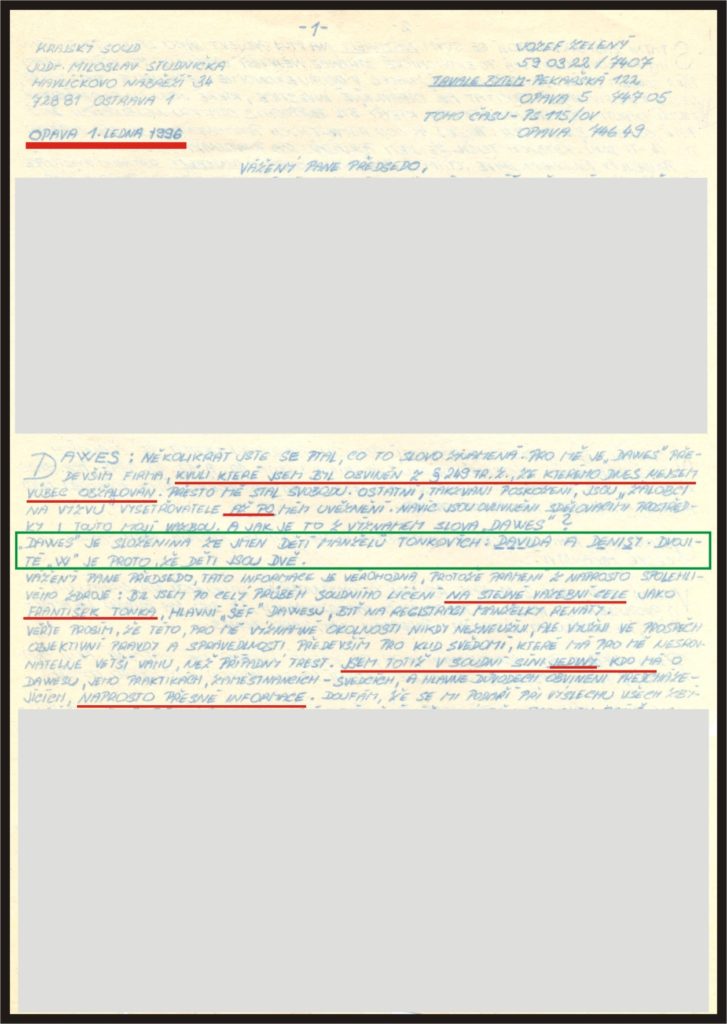 -1-
KRAJSKÝ SOUD -
JUDr. MILOSLAV STUDNIČKA
HAVLÍČKOVO NÁBŘEŽÍ 34
728 81 OSTRAVA 1
JOZEF ZELENÝ
59 03 22 / 7407
TRVALE BYTEM - PEKAŘSKÁ 122
OPAVA 5 747 05
TOHO ČASU - PS 115/OV
OPAVA 746 49
OPAVA 1. LEDNA 1996
VÁŽENÝ PANE PŘEDSEDO,
DAWES : NĚKOLIKRÁT JSTE SE PTAL, CO TO SLOVO ZNAMENÁ. PRO MĚ JE „DAWES" PŘE-
DEVŠÍM FIRMA, KVŮLI KTERÉ JSEM BYL OBVINĚN Z § 249 TR. Z., ZE KTERÉHO DNES NEJSEM
VŮBEC OBŽALOVÁN. PŘESTO MĚ STÁL SVOBODU. OSTATNÍ, TAKZVANÍ POŠKOZENÍ, JSOU „ŽALOBCI
NA VÝZVU" VYŠETŘOVATELE AŽ PO MÉM UVĚZNĚNÍ. NAVÍC JSOU OVLIVNĚNI SDĚLOVACÍMI PROSTŘED-
KY I TOUTO MOJÍ VAZBOU. A JAK JE TO Z VÝZNAMEM SLOVA „DAWES" ?
„DAWES" JE SLOŽENINA ZE JMEN DĚTÍ MANŽELŮ TONKOVÝCH: DAVIDA A DENISY. DVOJI-
TÉ „W" JE PROTO, ŽE DĚTI JSOU DVĚ.
VÁŽENÝ PANE PŘEDSEDO, TATO INFORMACE JE VĚROHODNÁ, PROTOŽE PRAMENÍ Z NAPROSTO SPOLEHLI-
VÉHO ZDROJE : BYL JSEM PO CELÝ PRŮBĚH SOUDNÍHO LÍČENÍ NA STEJNÉ VAZEBNÍ CELE JAKO
FRANTIŠEK TONKA, HLAVNÍ „ŠÉF" DAWESU, BYŤ NA REGISTRACI MANŽELKY RENÁTY.
VĚŘTE PROSÍM, ŽE TÉTO, PRO MĚ VÝZNAMNÉ OKOLNOSTI NIKDY NEZNEUŽIJI, ALE VYUŽIJI VE PROSPĚCH
OBJEKTIVNÍ PRAVDY A SPRAVEDLNOSTI PŘEDEVŠÍM PRO KLID SVĚDOMÍ, KTERÉ MÁ PRO MĚ NESROV-
NATELNĚ VĚTŠÍ VÁHU, NEŽ PŘÍPADNÝ TREST. JSEM TOTIŽ V SOUDNÍ SÍNI JEDINÝ, KDO MÁ O
DAWESU, JEHO PRAKTIKÁCH, ZAMĚSTNANCÍCH - SVĚDCÍCH, A HLAVNĚ DŮVODECH OBVINĚNÍ PŘEDCHÁZE-
JÍCÍCH, NAPROSTO PŘESNÉ INFORMACE. DOUFÁM, ŽE SE MI PODAŘÍ PŘI VÝSLECHU VŠECH ZBÝ-